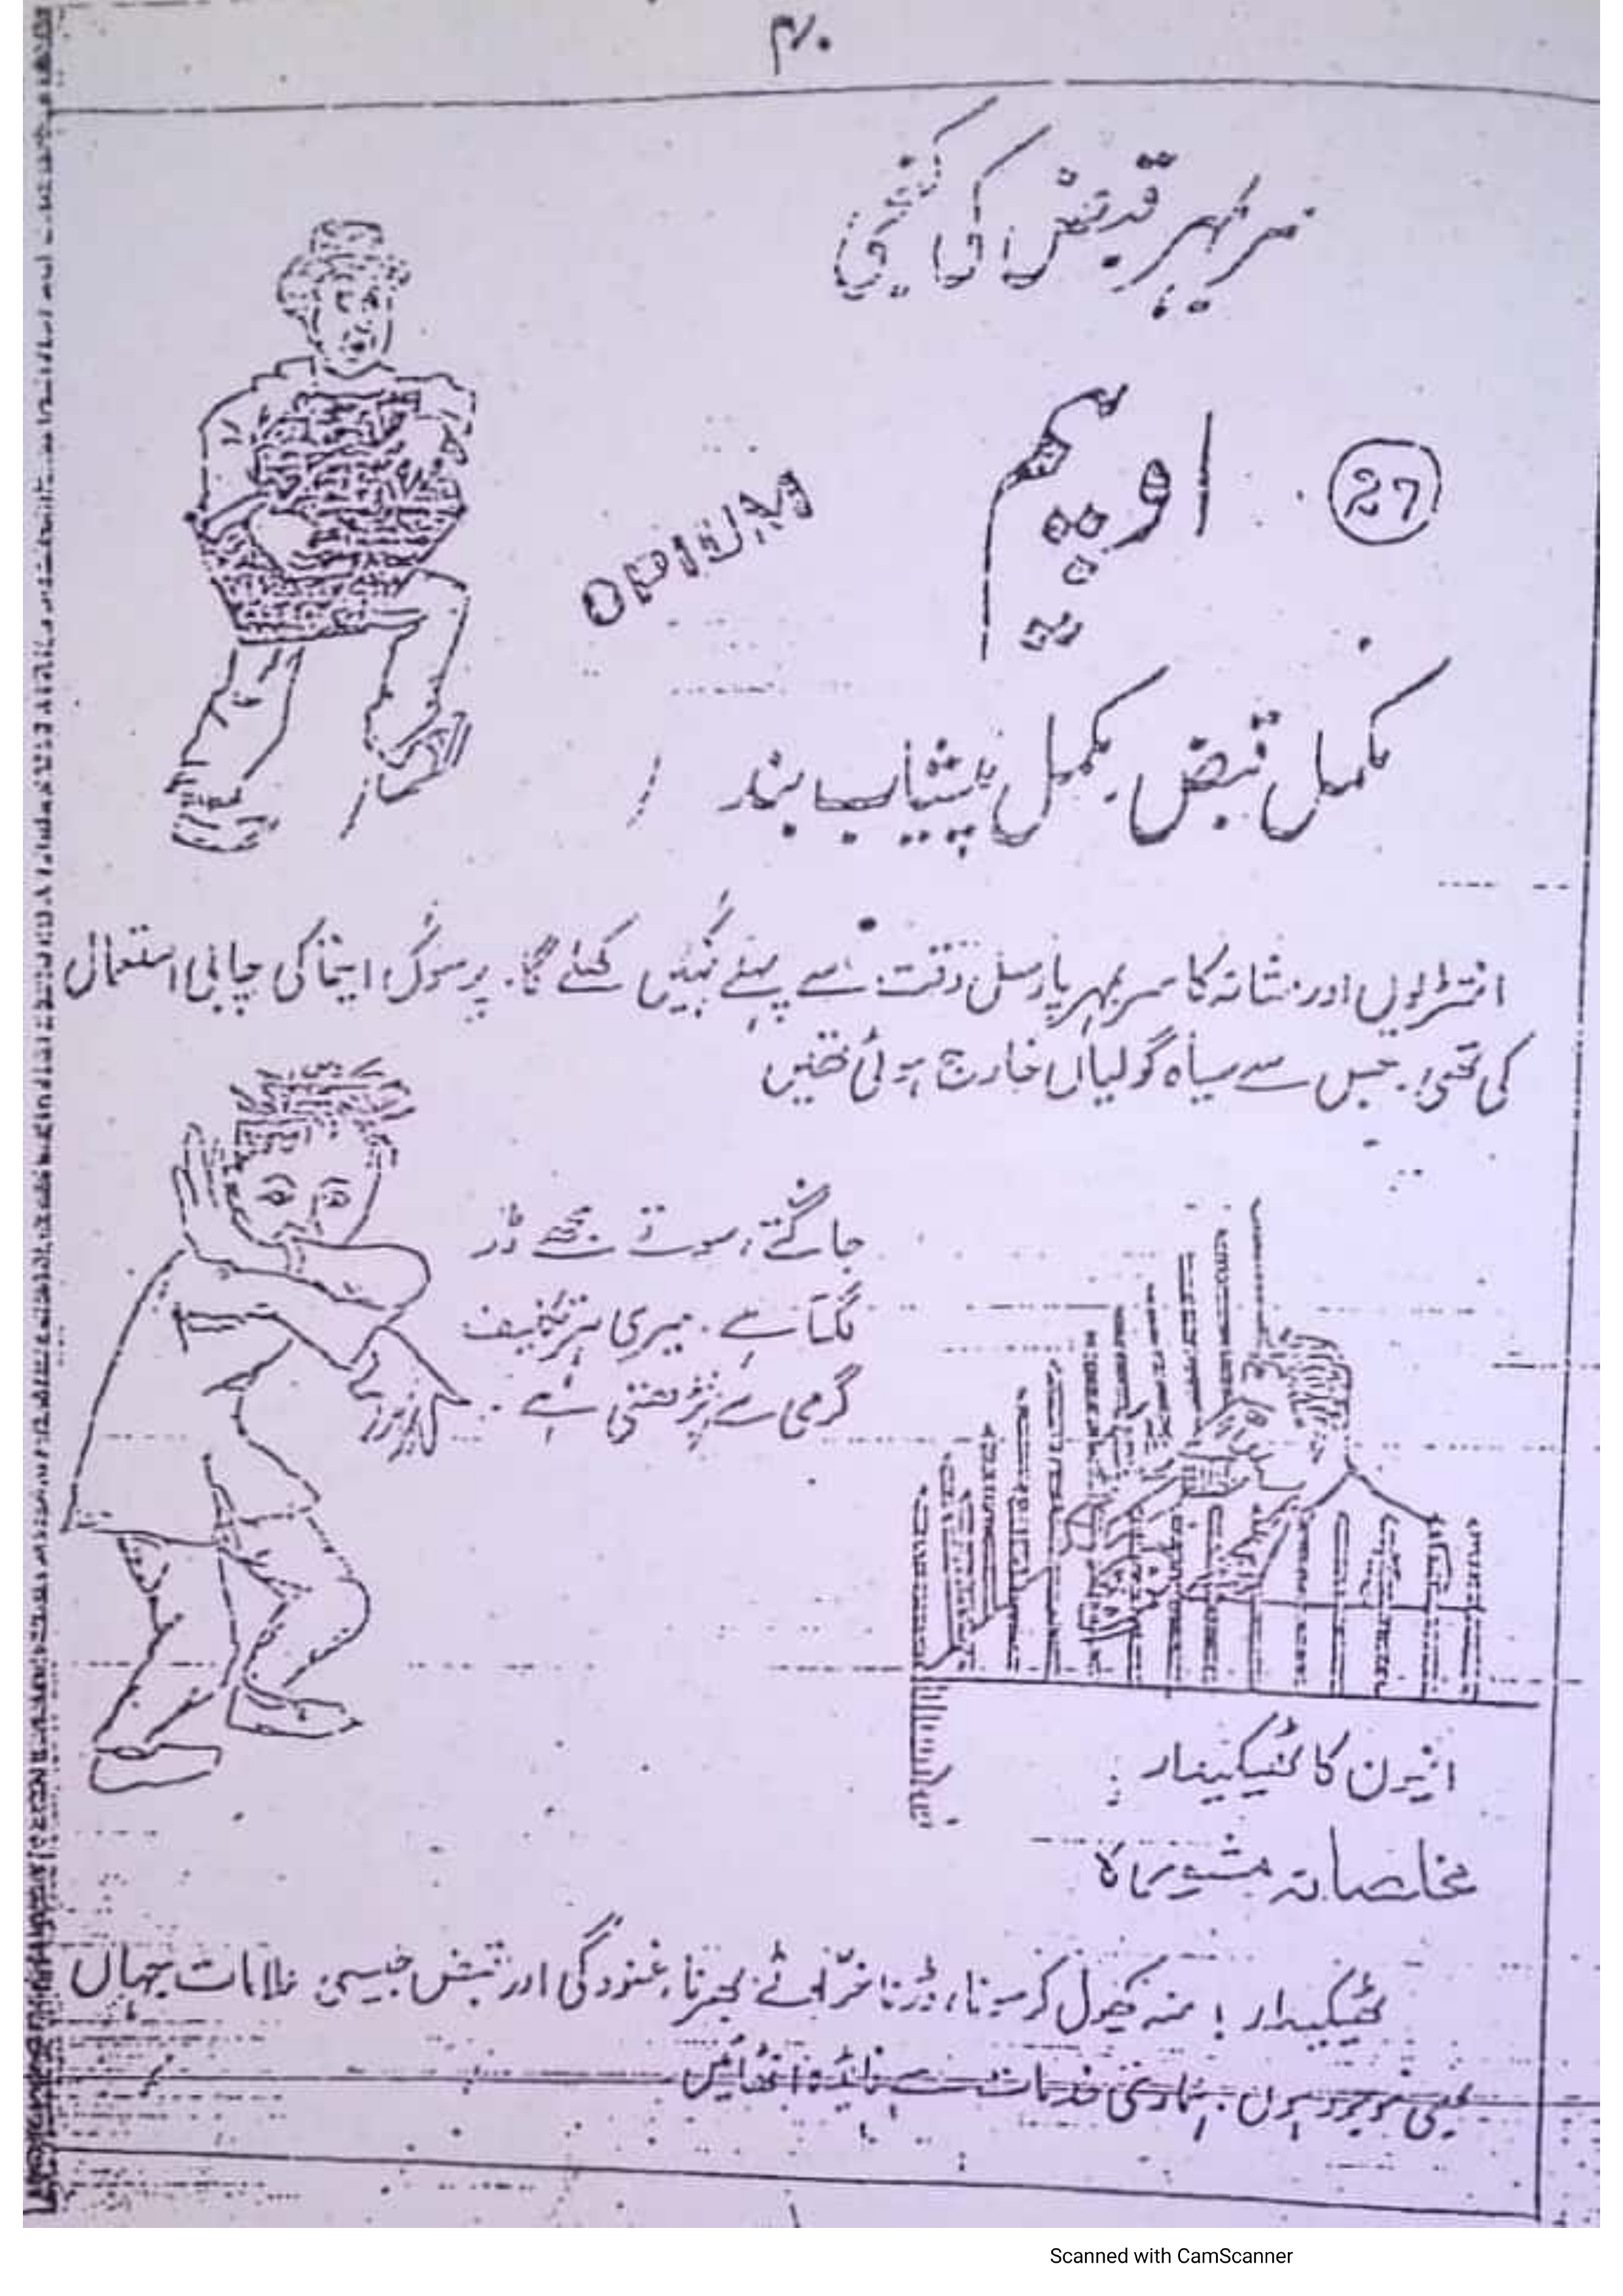 ۴۰
سر بمہر قبض کی کنجی
27
اوپیم
OPIUM
مکمل قبض۔ مکمل پیشاب بند
انتڑیوں اور مثانہ کا سر بمہر پارسل وقت سے پہلے نہیں کھلے گا۔ پرسوں اینما کی چابی استعمال
کی تھی۔ جس سے سیاہ گولیاں خارج ہوئی تھیں
جاگتے، سوتے مجھے ڈر
لگتا ہے۔ میری ہر تکلیف
گرمی سے بڑھتی ہے۔
افیون کا ٹھیکیدار :
مخلصانہ مشورہ
ٹھیکیدار ! منہ کھول کر سونا، ڈرنا خراٹے بھرنا، غنودگی اور قبض جیسی علامات جہاں
بھی موجود ہوں۔ ہماری خدمات سے فائدہ اٹھائیں
Scanned with CamScanner